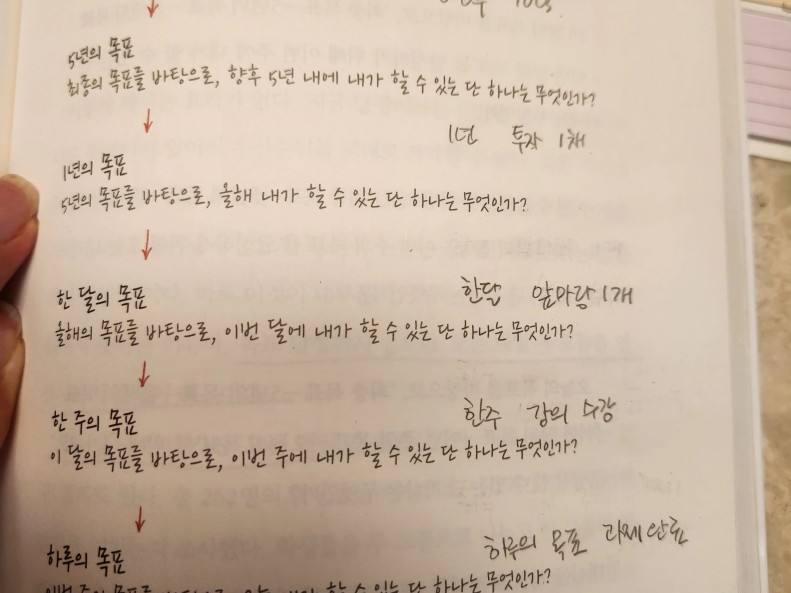 5년의 목표
최종의 목표를 바탕으로, 향후 5년 내에 내가 할 수 있는 단 하나는 무엇인가?
1년 투자 1채
1년의 목표
5년의 목표를 바탕으로, 올해 내가 할 수 있는 단 하나는 무엇인가?
한달 앞마당 1개
한 달의 목표
올해의 목표를 바탕으로, 이번 달에 내가 할 수 있는 단 하나는 무엇인가?
한주 강의 수강
한 주의 목표
이 달의 목표를 바탕으로, 이번 주에 내가 할 수 있는 단 하나는 무엇인가?
하루의 목표 과제완료
하루의 목표
할 수 있는 단 하나는 무엇인가?